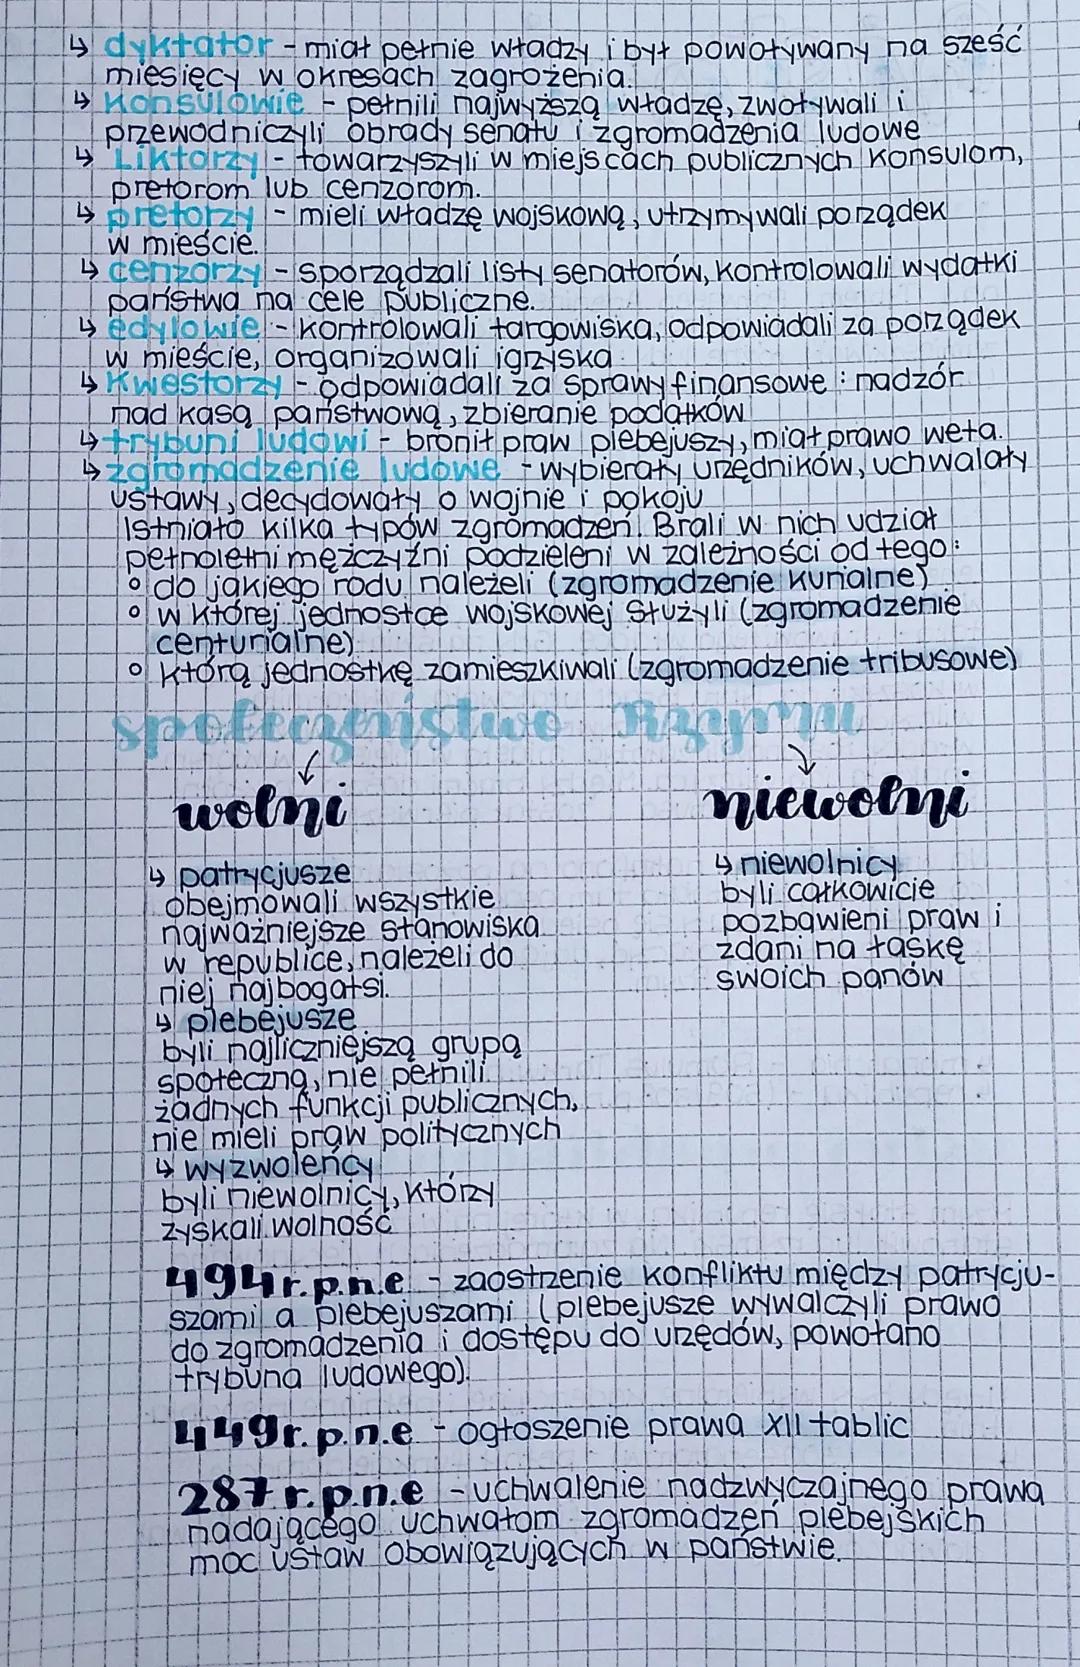 ↳ dyktator - miał pełnie władzy i był powoływany na sześć
miesięcy w okresach zagrożenia.
↳ Konsulowie - pełnili najwyższą władzę, zwoływali i
przewodniczyli obrady senatu i zgromadzenia ludowe
↳ Liktorzy - towarzyszyli w miejscach publicznych konsulom,
pretorom lub cenzorom.
↳ pretorzy - mieli władzę wojskową, utrzymywali porządek
w mieście.
↳ cenzorzy - sporządzali listy senatorów, kontrolowali wydatki
państwa na cele publiczne.
↳ edylowie - kontrolowali targowiska, odpowiadali za porządek
w mieście, organizowali igrzyska
↳ Kwestorzy - odpowiadali za sprawy finansowe : nadzór
nad kasą państwową, zbieranie podatków
↳ trybuni ludowi - bronił praw plebejuszy, miał prawo weta.
↳ zgromadzenie ludowe - wybierały urzędników, uchwalały
ustawy, decydowały o wojnie i pokoju
Istniało kilka typów zgromadzeń. Brali w nich udział
pełnoletni mężczyźni podzieleni w zależności od tego:
o do jakiego rodu należeli (zgromadzenie kurialne)
o w której jednostce wojskowej służyli (zgromadzenie
centurialne)
o którą jednostkę zamieszkiwali (zgromadzenie tribusowe)
społeczeństwo Rzymu
wolni niewolni
↳ patrycjusze
obejmowali wszystkie
najważniejsze stanowiska
w republice, należeli do
niej najbogatsi.
↳ plebejusze
byli najliczniejszą grupą
społeczną, nie pełnili
żadnych funkcji publicznych,
nie mieli praw politycznych
↳ wyzwoleńcy
byli niewolnicy, którzy
zyskali wolność
↳ niewolnicy
byli całkowicie
pozbawieni praw i
zdani na łaskę
swoich panów
494 r. p.n.e - zaostrzenie konfliktu między patrycju-
szami a plebejuszami (plebejusze wywalczyli prawo
do zgromadzenia i dostępu do urzędów, powołano
trybuna ludowego).
449 r. p.n.e - ogłoszenie prawa XII tablic
287 r. p.n.e - uchwalenie nadzwyczajnego prawa
nadającego uchwałom zgromadzeń plebejskich
moc ustaw obowiązujących w państwie.